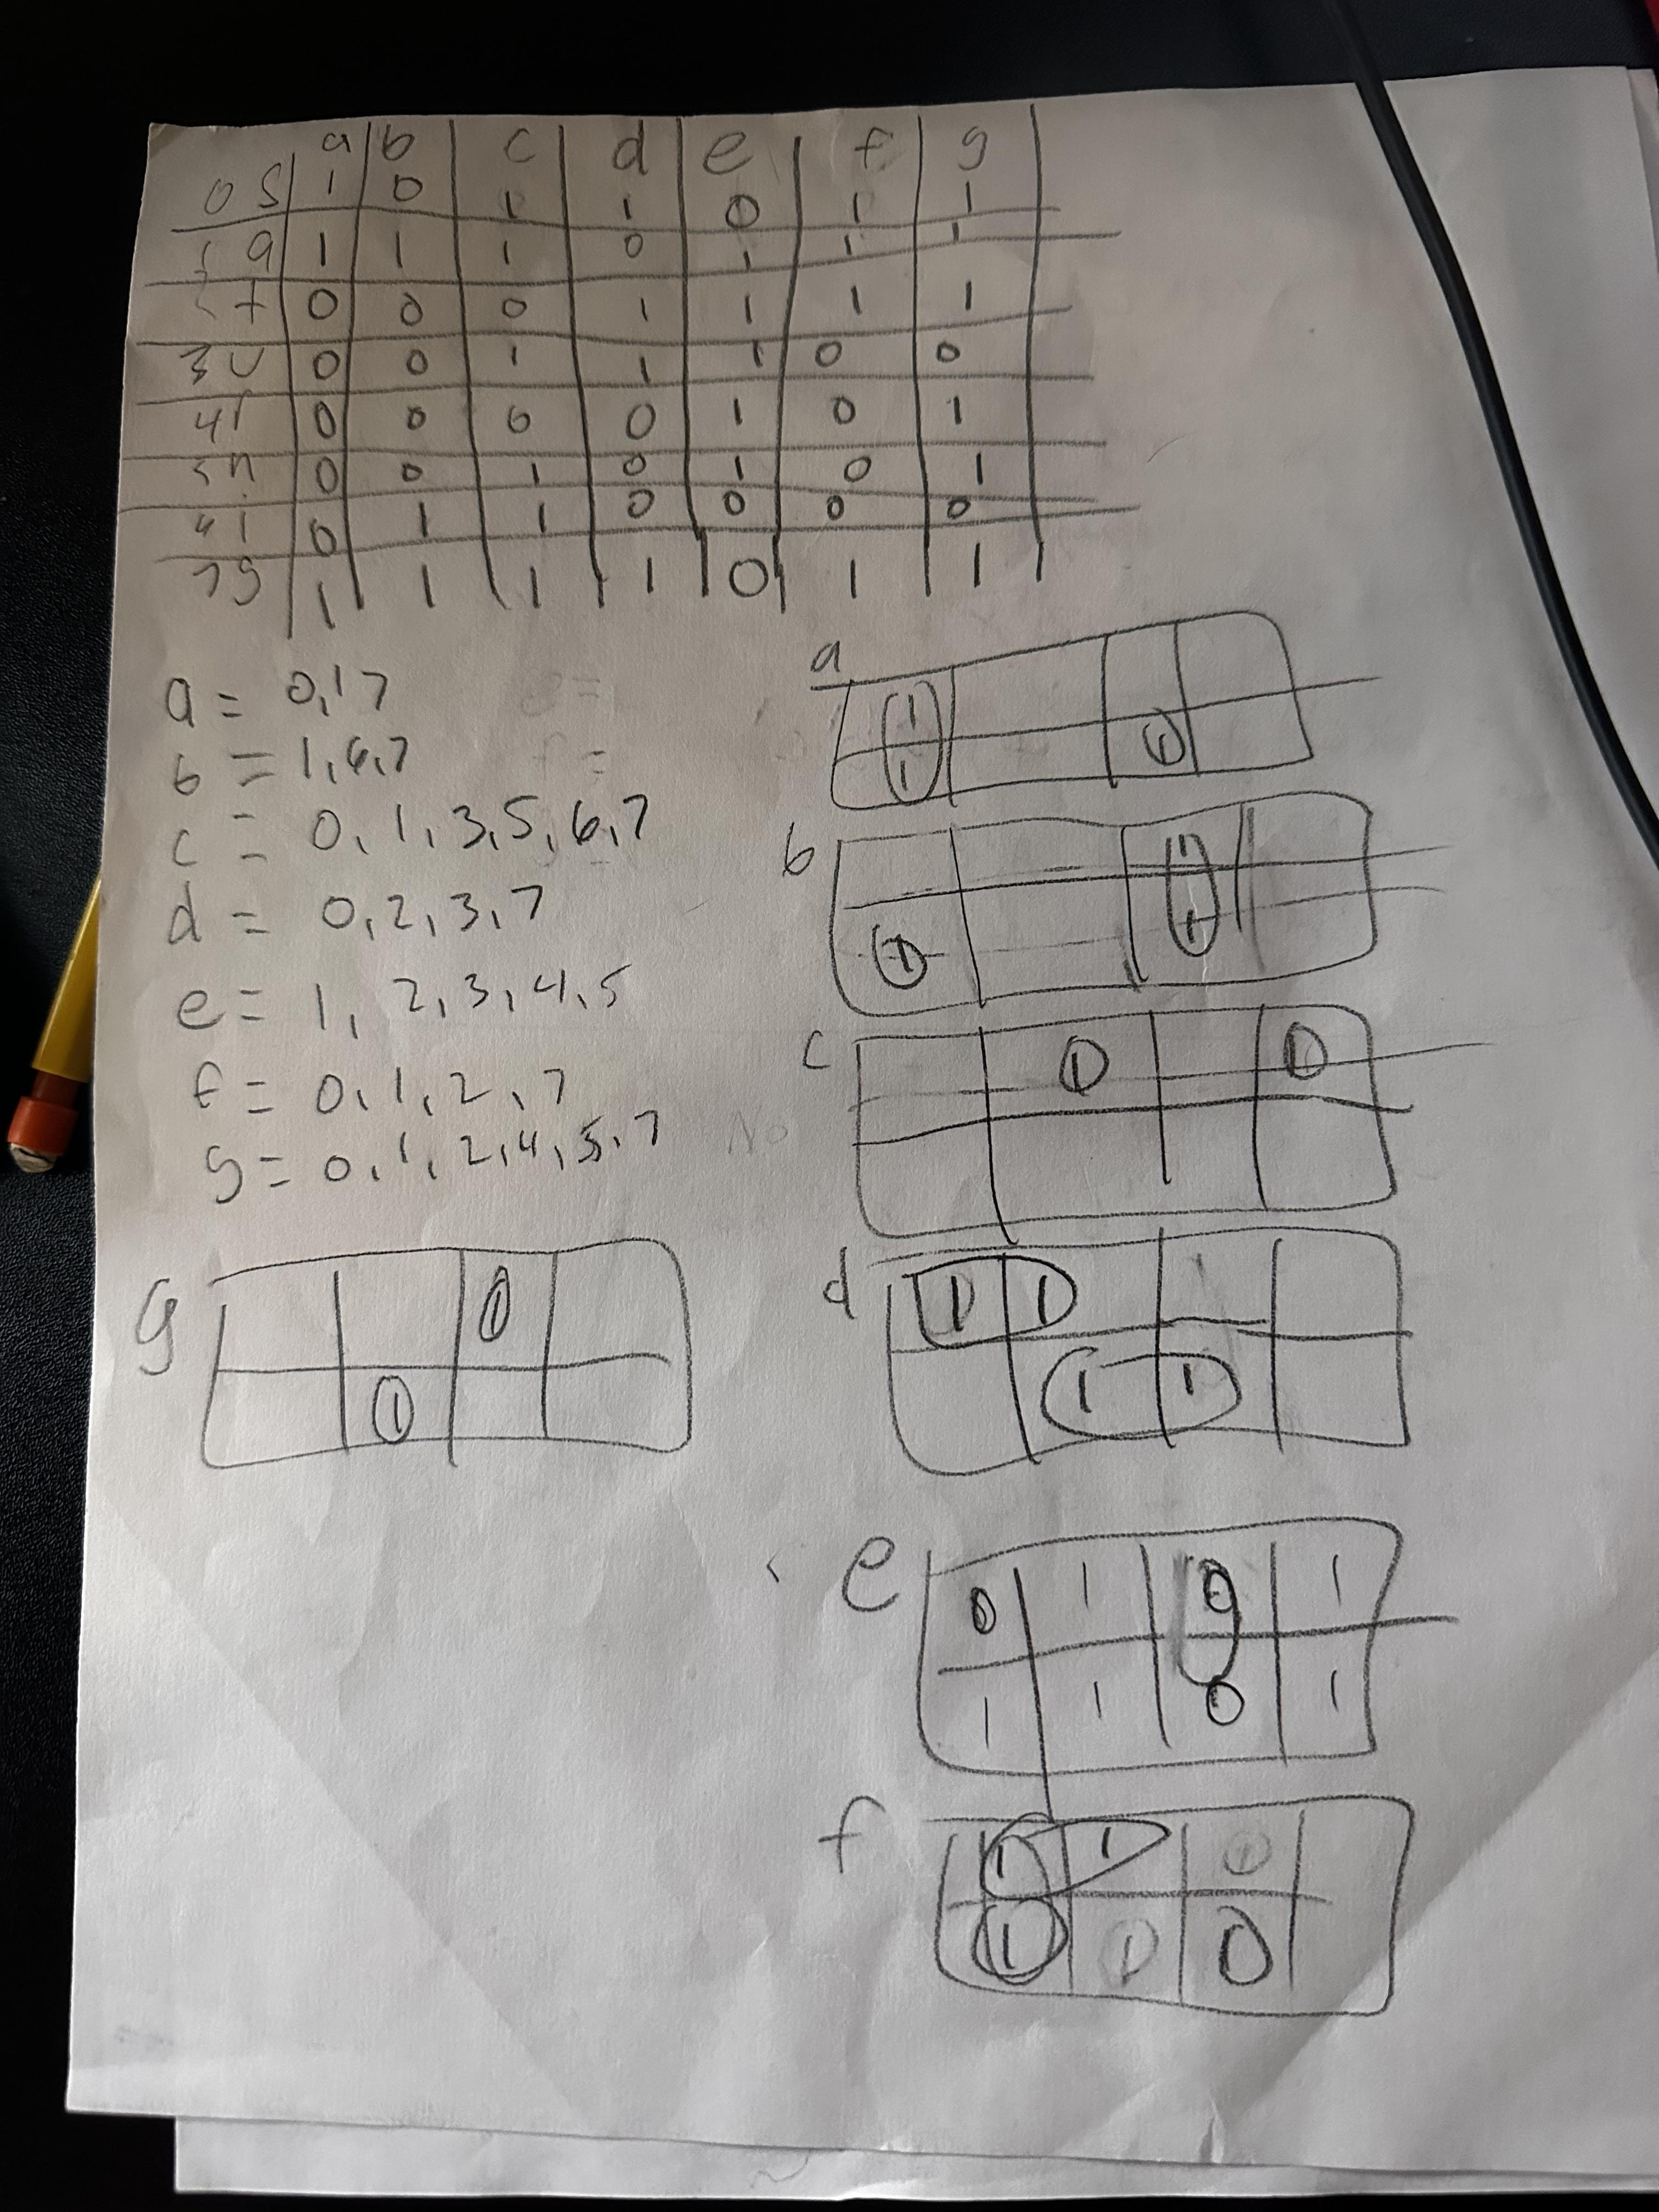 a b c d e f g
0 S 1 0 1 1 0 1 1
1 q 1 1 1 0 1 1 1
t 0 0 0 1 1 1 1
3 U 0 0 1 1 1 0 0
4 r 0 0 0 0 1 0 1
5 n 0 0 1 0 1 0 1
0 1 1 0 0 0 0
7 g 1 1 1 1 0 1 1
a = 0,1 7
b = 1,6,7
c = 0, 1, 3, 5, 6, 7
d = 0, 2, 3, 7
e = 1, 2, 3, 4, 5
f = 0, 1, 2, 7
g = 0, 1, 2, 4, 5, 7 No
a
1
1 1
b
1
1 1
c
1 1
d
1 1
1 1
e
0 1 0 1
1 1 0 1
f
1 1 1
1 1 0
g
1
1